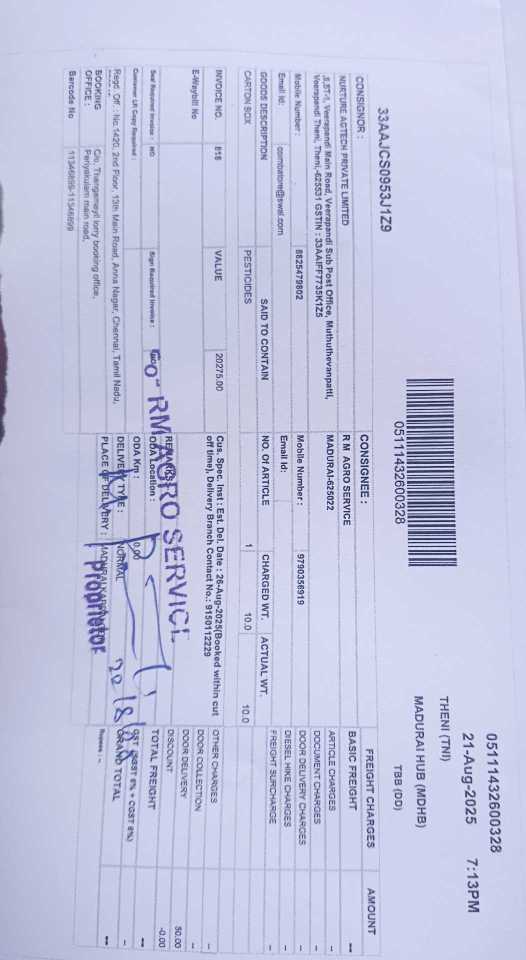 05111432600328
21-Aug-2025 7:13PM
THENI (TNI)
MADURAI HUB (MDHB)
TBB (DD)
05111432600328
33AAJCS0953J1Z9
CONSIGNOR :
NURTURE AGTECH PRIVATE LIMITED
Veerapandi Main Road, Veerapandi Sub Post Office, Muthuthevanpatti,
Veerapandi Theni, Theni,-625531 GSTIN : 33AAIFF7735K1Z5
Mobile Number : 8825479802
Email Id: coimbatore@swal.com
CONSIGNEE :
R M AGRO SERVICE
MADURAI-625022
Mobile Number : 9790356919
Email Id:
FREIGHT CHARGES AMOUNT
BASIC FREIGHT --
ARTICLE CHARGES -
DOCUMENT CHARGES -
DOOR DELIVERY CHARGES -
DIESEL HIKE CHARGES -
FREIGHT SURCHARGE -
GOODS DESCRIPTION SAID TO CONTAIN NO. Of ARTICLE CHARGED WT. ACTUAL WT.
CARTON BOX PESTICIDES 1 10.0 10.0
INVOICE NO. 818 VALUE 20275.00
E-Waybill No
Cus. Spec. Inst : Est. Del. Date : 26-Aug-2025(Booked within cut
off time), Delivery Branch Contact No.: 9150112229
OTHER CHARGES -
DOOR COLLECTION -
DOOR DELIVERY 50.00
DISCOUNT -0.00
TOTAL FREIGHT --
GRAND TOTAL --
Rupees : --
Seal Required Invoice : NO Sign Required Invoice :
Customer LR Copy Required :
REMARKS
ODA Location :
ODA Km : 0.00
DELIVERY TYPE : NORMAL
PLACE OF DELIVERY :
RM AGRO SERVICE
Proprietor
Regd. Off : No.1420, 2nd Floor, 13th Main Road, Anna Nagar, Chennai, Tamil Nadu,
BOOKING
OFFICE :
C/o, Thangamayil lorry booking office,
Periyakulam main road,
Barcode No 11346899-11346899